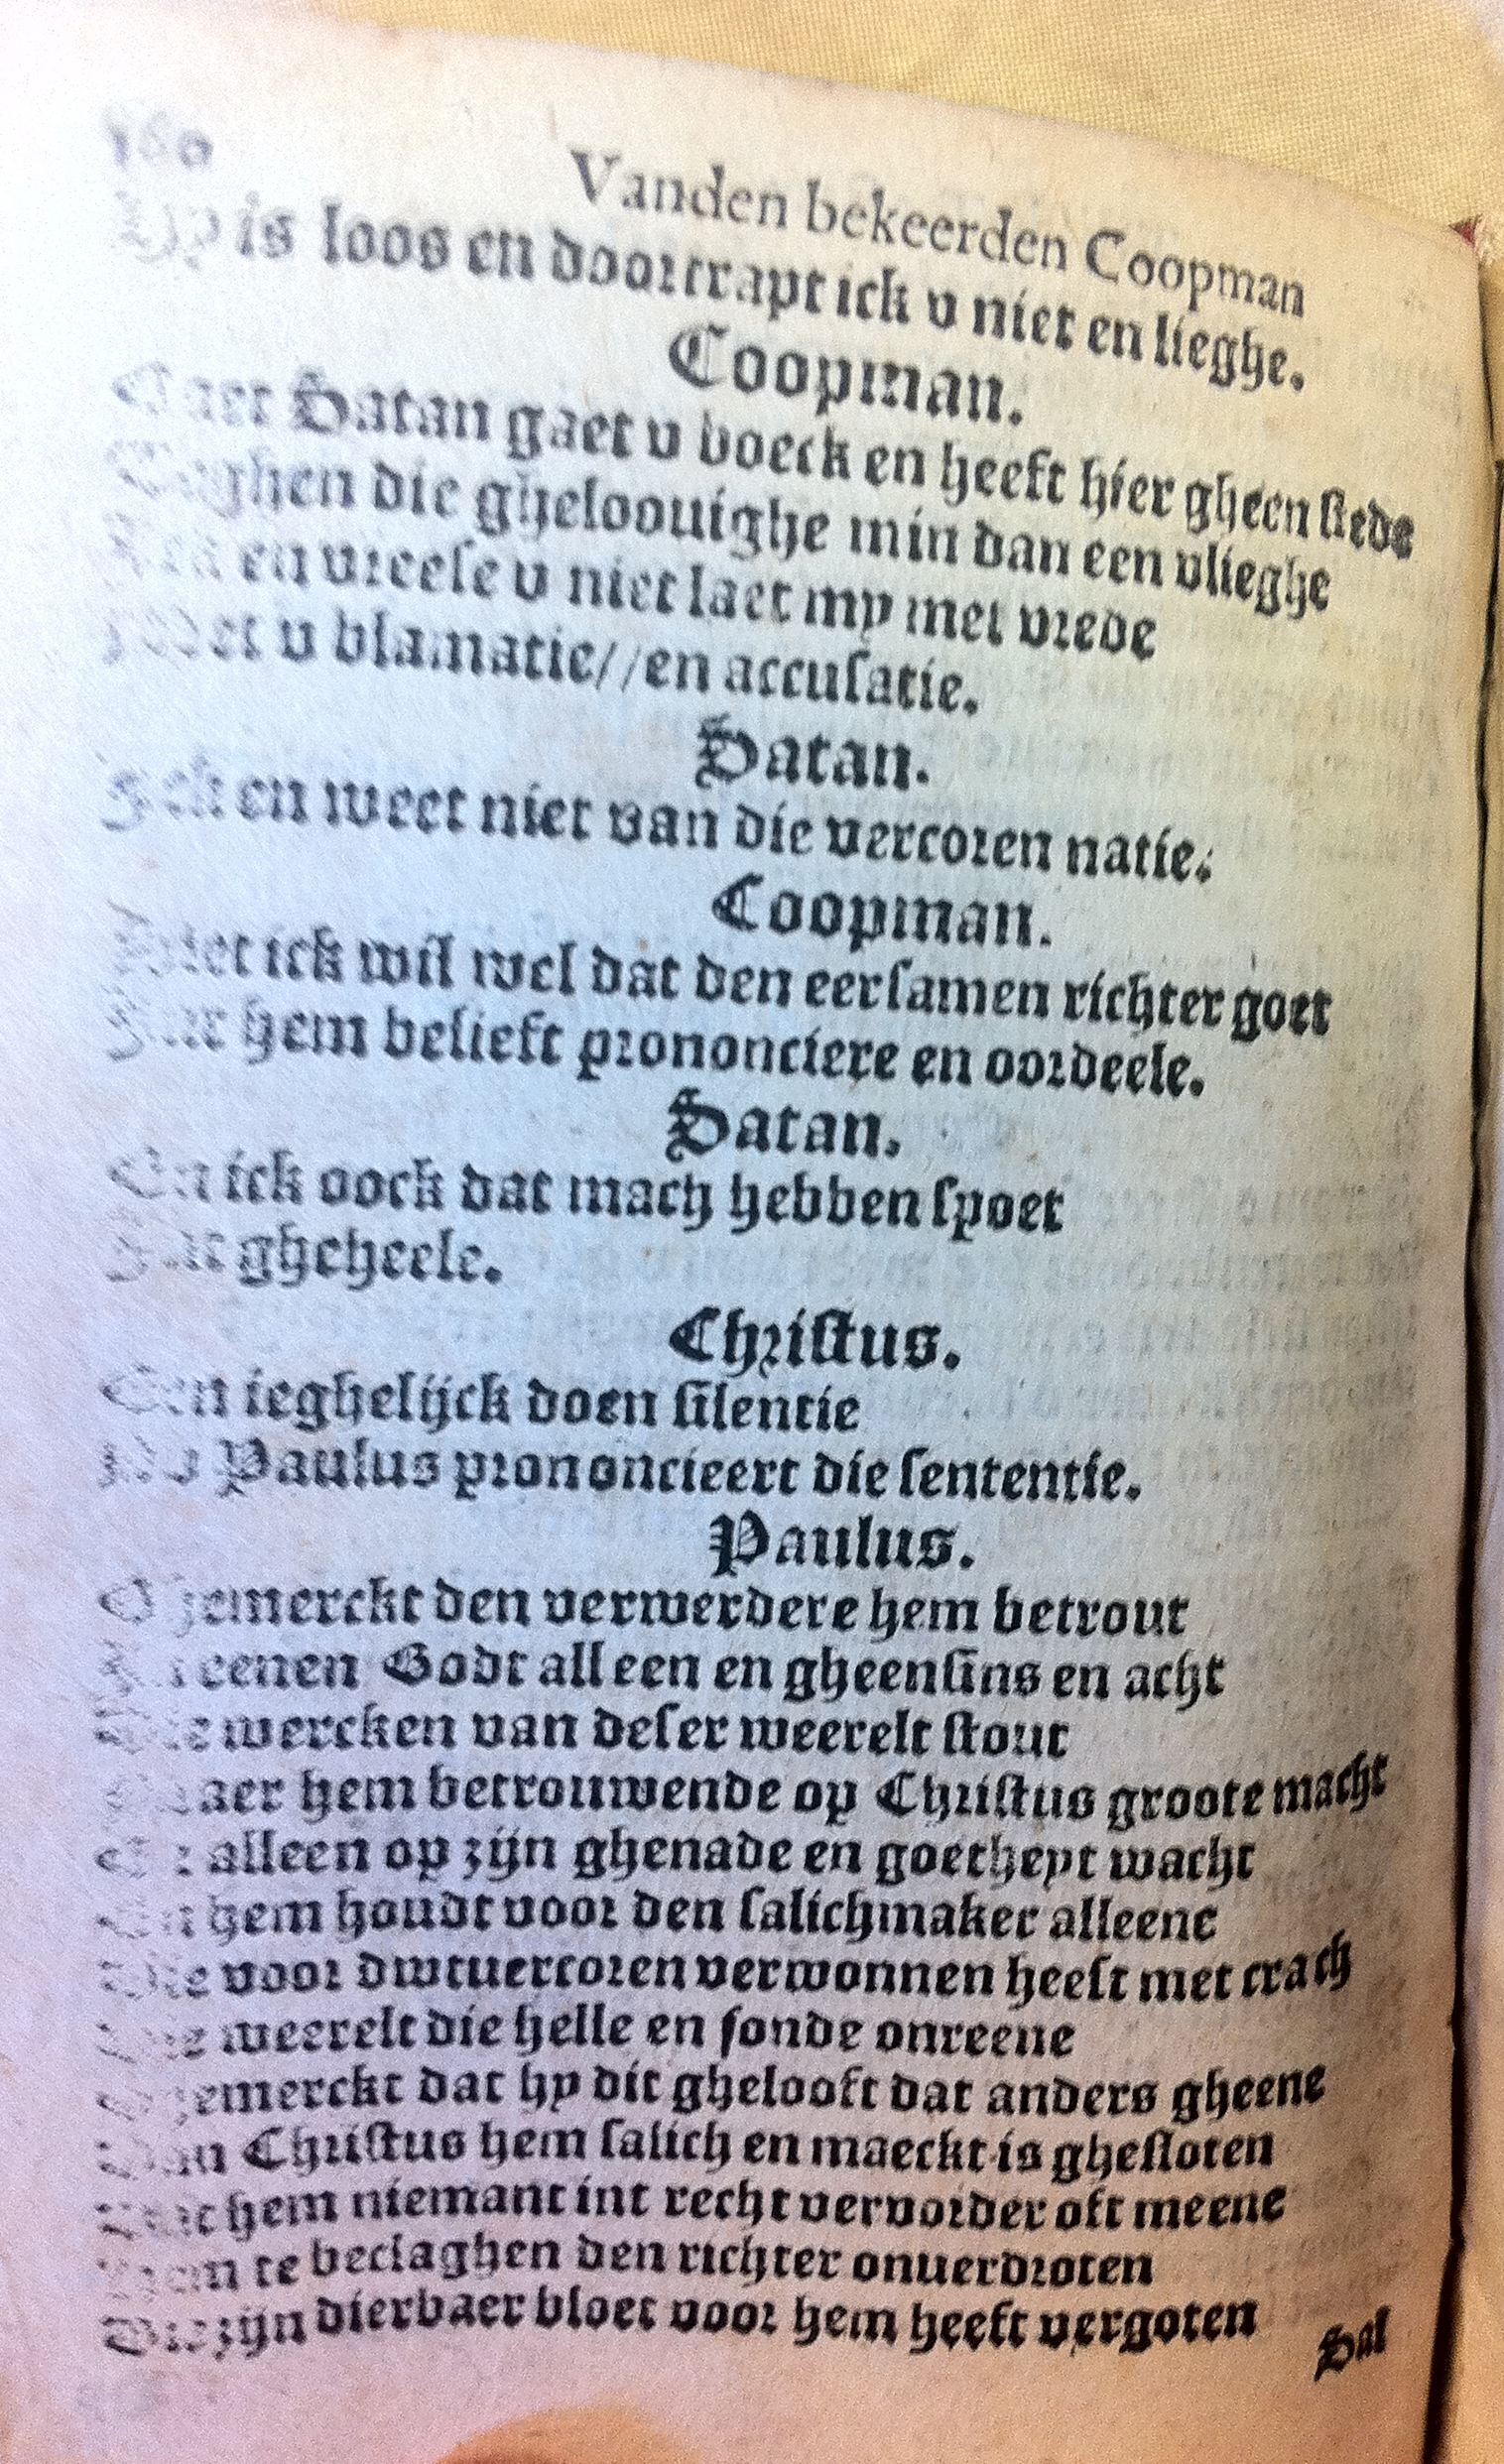 160
Vanden bekeerden Coopman
Hy is loos en doortrapt ick v niet en lieghe.
Coopman.
Satan gaet v boeck en heeft hier gheen stede
Teghen die gheloouighe min dan een vlieghe
en vreese v niet laet my met vrede
Met v blamatie//en accusatie.
Satan.
Ick en weet niet van die vercoren natie.
Coopman.
ick wil wel dat den eersamen richter goet
hem belieft prononciere en oordeele.
Satan.
En ick oock dat mach hebben spoet
gheheele.
Christus.
Een ieghelijck doen silentie
Paulus prononcieert die sententie.
Paulus.
Ghemerckt den verwerdere hem betrout
eenen Godt alleen en gheensins en acht
Die wercken van deser weerelt stout
Maer hem betrouwende op Christus groote macht
alleen op zijn ghenade en goetheyt wacht
En hem houdt voor den salichmaker alleene
Die voor dwtuercoren verwonnen heeft met crach
Die weerelt die helle en sonde onreene
Ghemerckt dat hy dit ghelooft dat anders gheene
Dan Christus hem salich en maeckt is ghesloten
hem niemant int recht vervorder oft meene
Hem te beclaghen den richter onuerdroten
Die zijn dierbaer bloet voor hem heeft vergoten
Sal